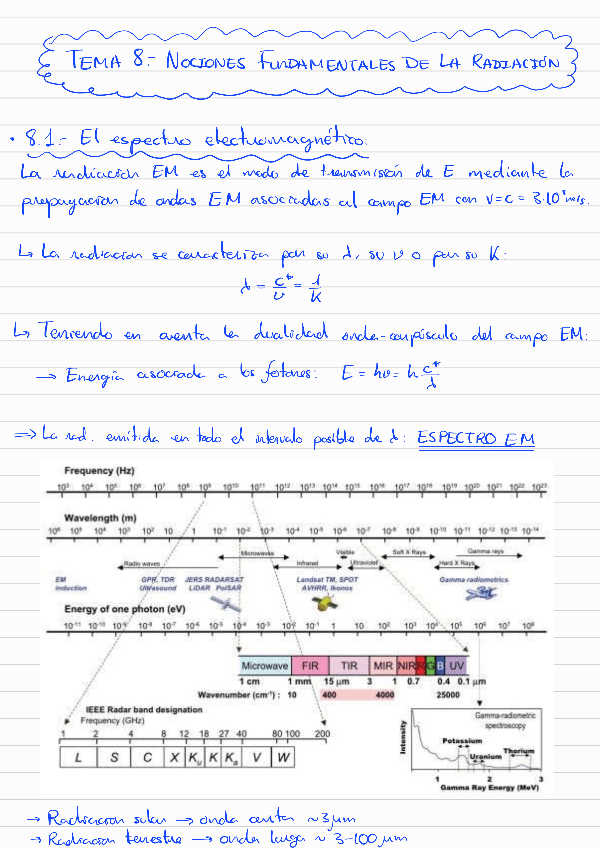 TEMA 8.- NOCIONES FUNDAMENTALES DE LA RADIACIÓN
· 8.1.- El espectro electromagnético:
La radiación EM es el modo de transmisión de E mediante la
propagación de ondas EM asociadas al campo EM con v=c = 3·10⁸ m/s.
↳ La radiación se caracteriza por su λ, su ν o por su K:
λ = c*/ν = 1/K
↳ Teniendo en cuenta la dualidad onda-corpúsculo del campo EM:
→ Energía asociada a los fotones: E = hν = h c*/λ
⇒ La rad. emitida en todo el intervalo posible de λ: ESPECTRO EM
Frequency (Hz)
10³ 10⁴ 10⁵ 10⁶ 10⁷ 10⁸ 10⁹ 10¹⁰ 10¹¹ 10¹² 10¹³ 10¹⁴ 10¹⁵ 10¹⁶ 10¹⁷ 10¹⁸ 10¹⁹ 10²⁰ 10²¹ 10²² 10²³
Wavelength (m)
10⁶ 10⁵ 10⁴ 10³ 10² 10 1 10⁻¹ 10⁻² 10⁻³ 10⁻⁴ 10⁻⁵ 10⁻⁶ 10⁻⁷ 10⁻⁸ 10⁻⁹ 10⁻¹⁰ 10⁻¹¹ 10⁻¹² 10⁻¹³ 10⁻¹⁴
Microwaves Visible Soft X Rays Gamma rays
Radio waves Infrared Ultraviolet Hard X Rays
EM GPR, TDR JERS RADARSAT Landsat TM, SPOT Gamma radiometrics
induction Ultrasound LiDAR PalSAR AVHRR, Ikonos
Energy of one photon (eV)
10⁻¹¹ 10⁻¹⁰ 10⁻⁹ 10⁻⁸ 10⁻⁷ 10⁻⁶ 10⁻⁵ 10⁻⁴ 10⁻³ 10⁻² 10⁻¹ 1 10 10² 10³ 10⁴ 10⁵ 10⁶ 10⁷ 10⁸
Microwave FIR TIR MIR NIR R G B UV
1 cm 1 mm 15 µm 3 1 0.7 0.4 0.1 µm
Wavenumber (cm⁻¹) : 10 400 4000 25000
IEEE Radar band designation
Frequency (GHz)
1 2 4 8 12 18 27 40 80 100 200
L S C X Ku K Ka V W
Gamma-radiometric
spectroscopy
Intensity
Potassium
Uranium
Thorium
1 2 3
Gamma Ray Energy (MeV)
→ Radiación solar → onda corta ~3µm
→ Radiación terrestre → onda larga ~ 3-100 µm